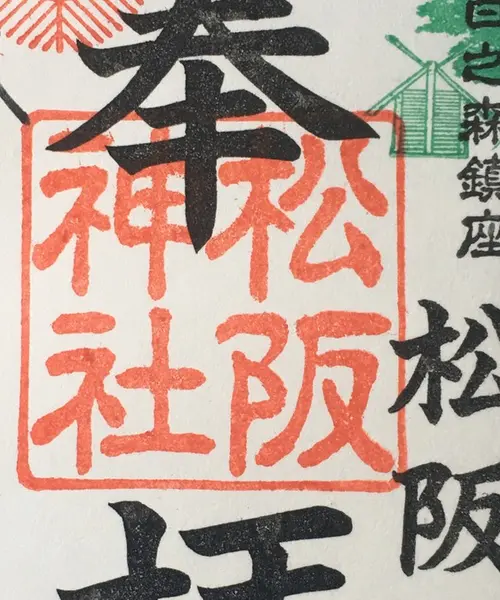 之森鎮座
松阪
奉
松阪
神社